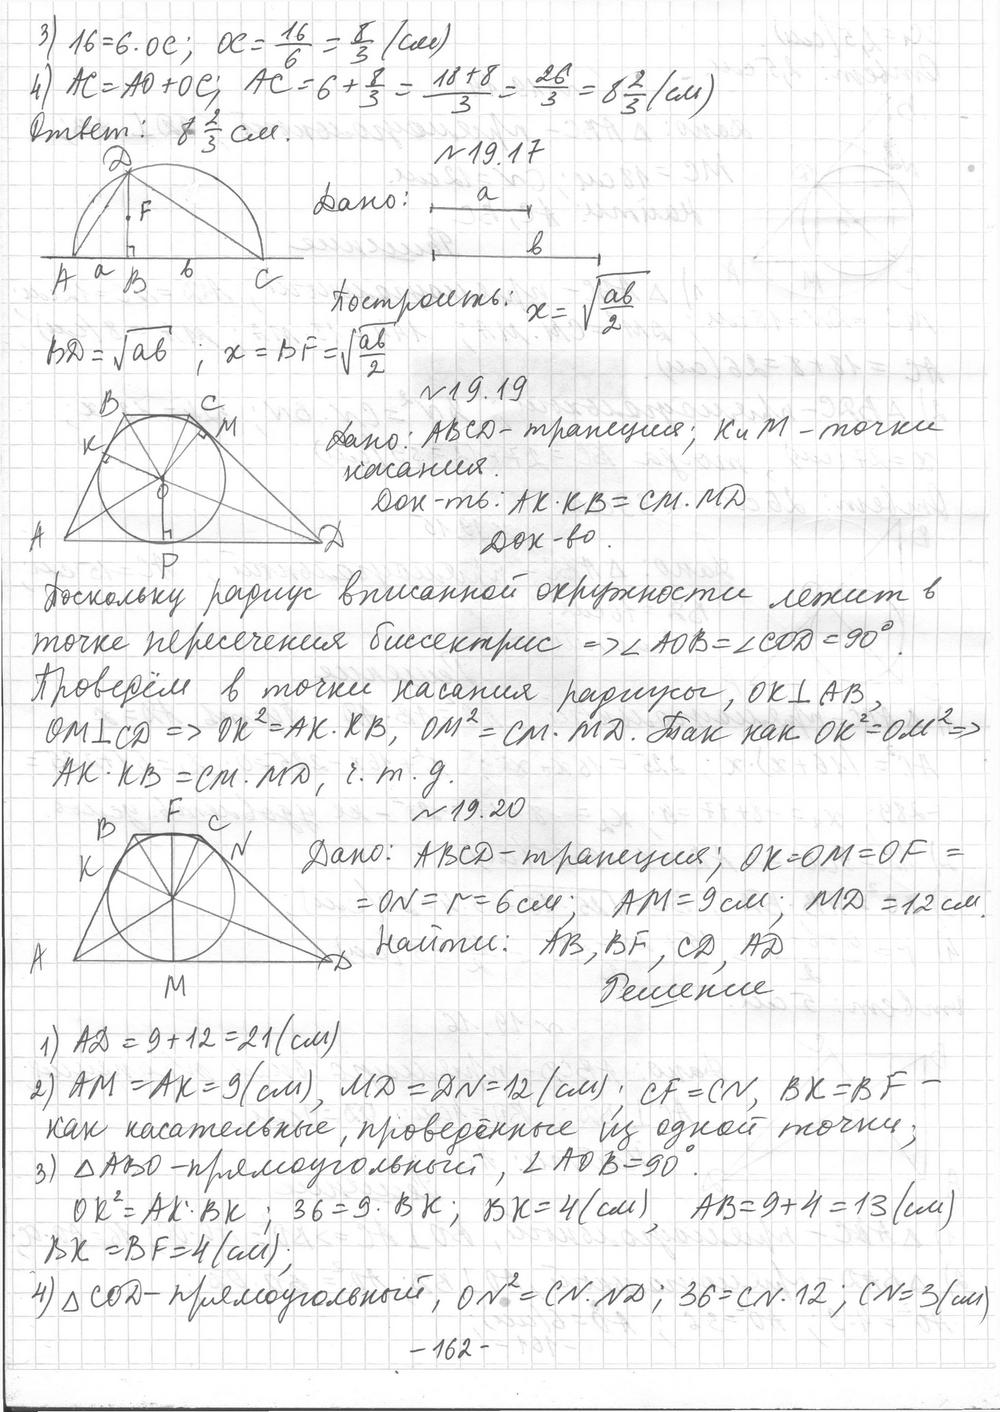 3) 16=6·OC; OC=16/6=8/3 (см)
4) AC=AO+OC; AC=6+8/3=(18+8)/3=26/3=8 2/3 (см)
Ответ: 8 2/3 см.
№19.17
Дано: a
b
D
F
A a B b C
Построить: x=√(ab/2)
BD=√ab ; x=BF=√(ab/2)
№19.19
B C
K M
O
A P D
Дано: ABCD-трапеция; K и M-точки
касания.
Док-ть: AK·KB=CM·MD
Док-во.
Поскольку радиус вписанной окружности лежит в
точке пересечения биссектрис =>∠AOB=∠COD=90°.
Проведём в точки касания радиусы, OK⊥AB,
OM⊥CD => OK²=AK·KB, OM²=CM·MD. Так как OK²=OM²=>
AK·KB=CM·MD, ч.т.д.
№19.20
B F C
K N
A M D
Дано: ABCD-трапеция; OK=OM=OF=
=ON=r=6см; AM=9см; MD=12см.
Найти: AB, BF, CD, AD
Решение
1) AD=9+12=21(см)
2) AM=AK=9(см), MD=DN=12(см); CF=CN, BK=BF-
как касательные, проведённые из одной точки;
3) △ABO-прямоугольный, ∠AOB=90°.
OK²=AK·BK; 36=9·BK; BK=4(см), AB=9+4=13(см)
BK=BF=4(см);
4) △COD-прямоугольный, ON²=CN·ND; 36=CN·12; CN=3(см)
-162-